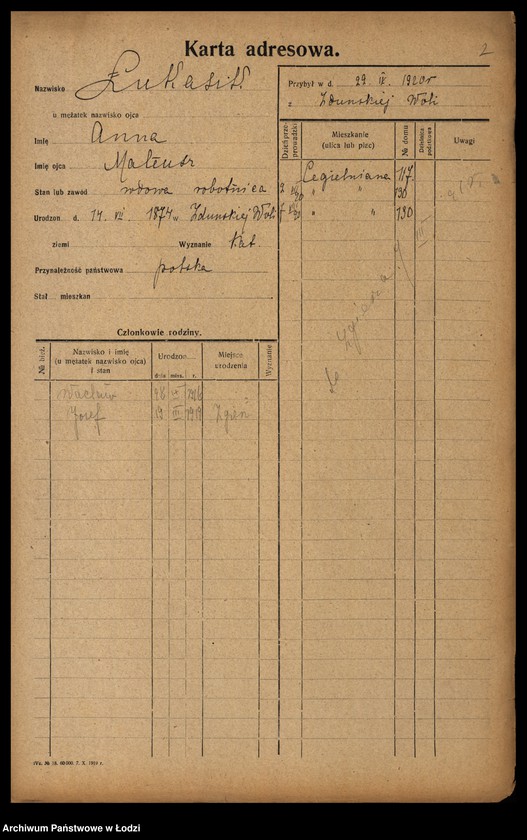 Karta adresowa.
2
Nazwisko Łukasik
u mężatek nazwisko ojca
Imię Anna
Imię ojca Mateusz
Stan lub zawód wdowa robotnica
Urodzon d. 14. VII. 1874 w Zduńskiej Woli
ziemi Wyznanie kat.
Przynależność państwowa polska
Stał. mieszkan
Przybył w d. 29. IX. 1920 r
z Zduńskiej Woli
Dzień prze-prowadzki
Mieszkanie (ulica lub plac)
№ domu
Dzielnica podatkowa
Uwagi
Cegielniana 117
" " 130
" " 130
Członkowie rodziny.
№ bież.
Nazwisko i imię (u mężatek nazwisko ojca) i stan
Urodzon
dnia mies. r.
Miejsce urodzenia
Wyznanie
Wacław
Józef 19 III 1919
Archiwum Państwowe w Łodzi